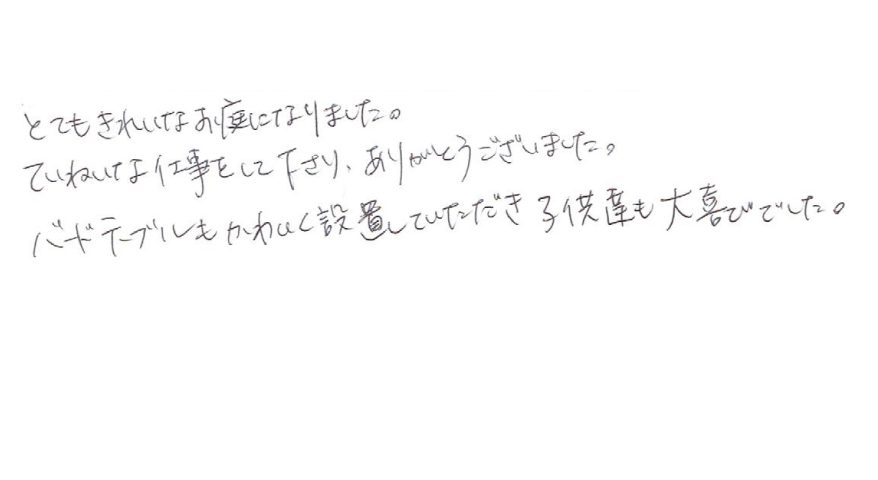 とてもきれいなお庭になりました。
ていねいな仕事をして下さり、ありがとうございました。
バードテーブルもかわいく設置していただき子供達も大喜びでした。